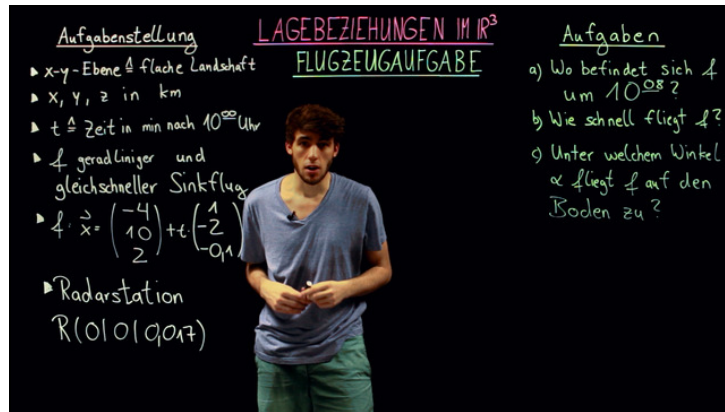 LAGEBEZIEHUNGEN IM IR³
FLUGZEUGAUFGABE
Aufgabenstellung
▸ x-y-Ebene ≙ flache Landschaft
▸ x, y, z in km
▸ t ≙ Zeit in min nach 10⁰⁰ Uhr
▸ f geradliniger und
gleichschneller Sinkflug
▸ f: x⃗ = (-4 10 2) + t· (1 -2 -0,1)
▸ Radarstation
R(0|0|0,017)
Aufgaben
a) Wo befindet sich f
um 10⁰⁸?
b) Wie schnell fliegt f?
c) Unter welchem Winkel
α fliegt f auf den
Boden zu?